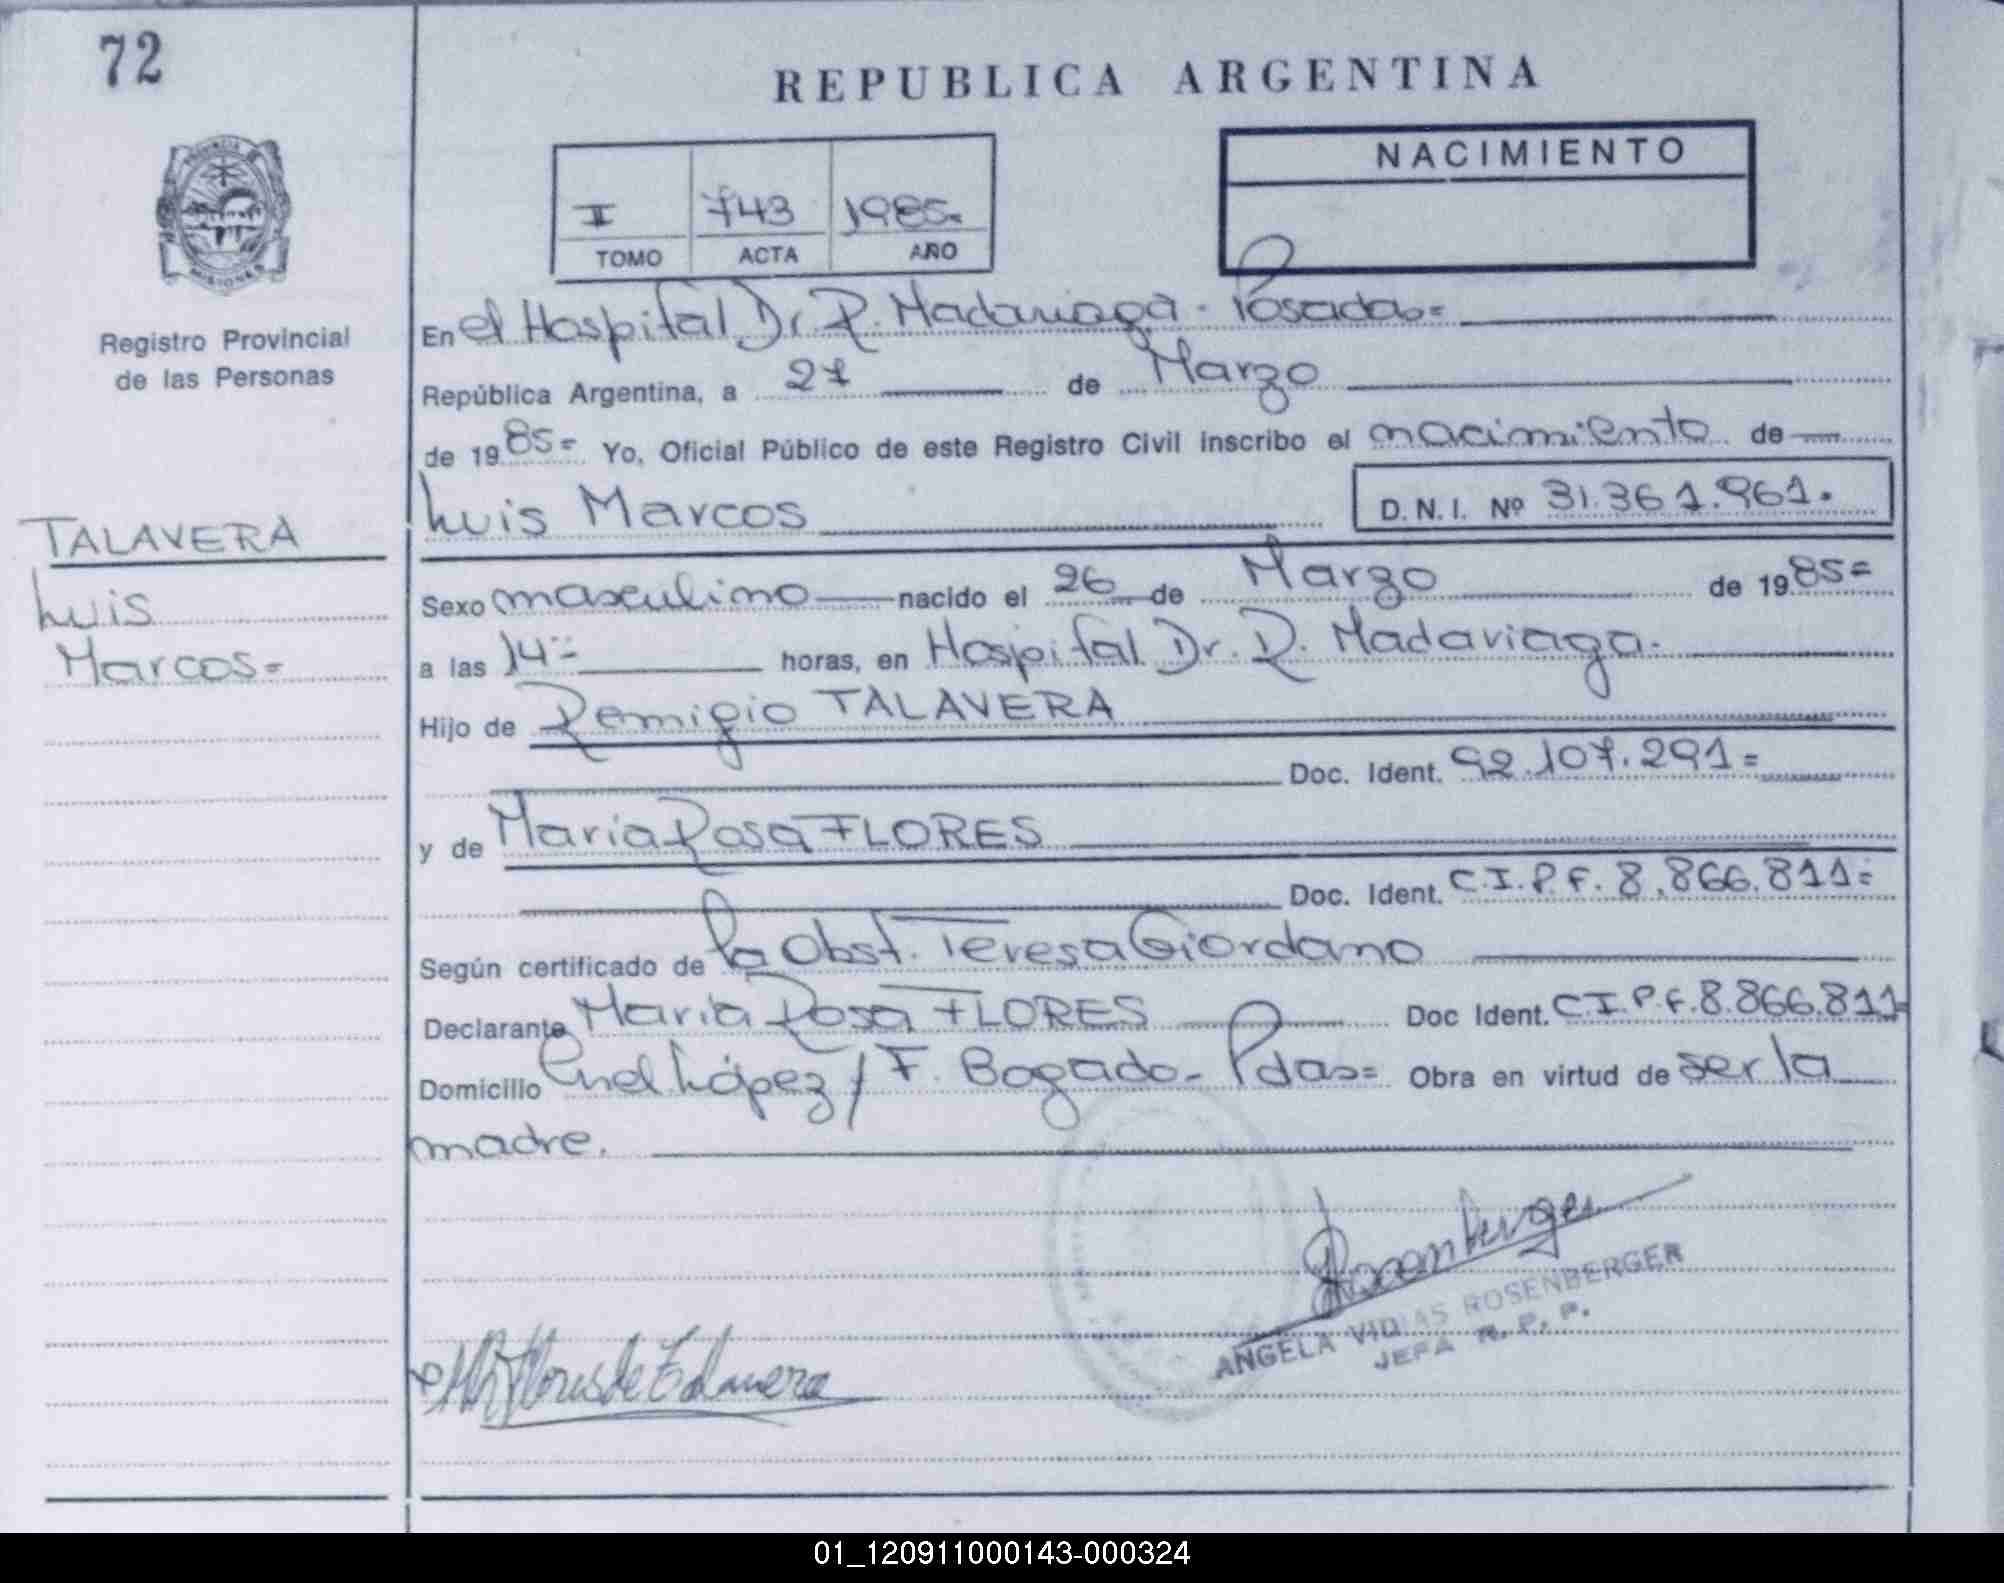 72
REPUBLICA ARGENTINA
PROVINCIA DE
MISIONES
Registro Provincial
de las Personas
TALAVERA
Luis
Marcos=
NACIMIENTO
I 743 1985=
TOMO ACTA AÑO
En el Hospital Dr. R. Madariaga - Posadas=
República Argentina, a 27 de Marzo
de 1985= Yo, Oficial Público de este Registro Civil inscribo el nacimiento de
Luis Marcos D.N.I. Nº 31.361.961.
Sexo masculino nacido el 26 de Marzo de 1985=
a las 14= horas, en Hospital Dr. R. Madariaga.
Hijo de Remigio TALAVERA
Doc. Ident. 92.107.291=
y de María Rosa FLORES
Doc. Ident. C.I.P.F. 8.866.811=
Según certificado de la Obst. Teresa Giordano
Declarante María Rosa FLORES Doc Ident. C.I.P.F. 8.866.811=
Domicilio Cnel López / F. Bogado - Pdas= Obra en virtud de ser la
madre.
Rosenberger
ANGELA VIDIAS ROSENBERGER
JEFA R. P. P.
Flores de Talavera
01_120911000143-000324